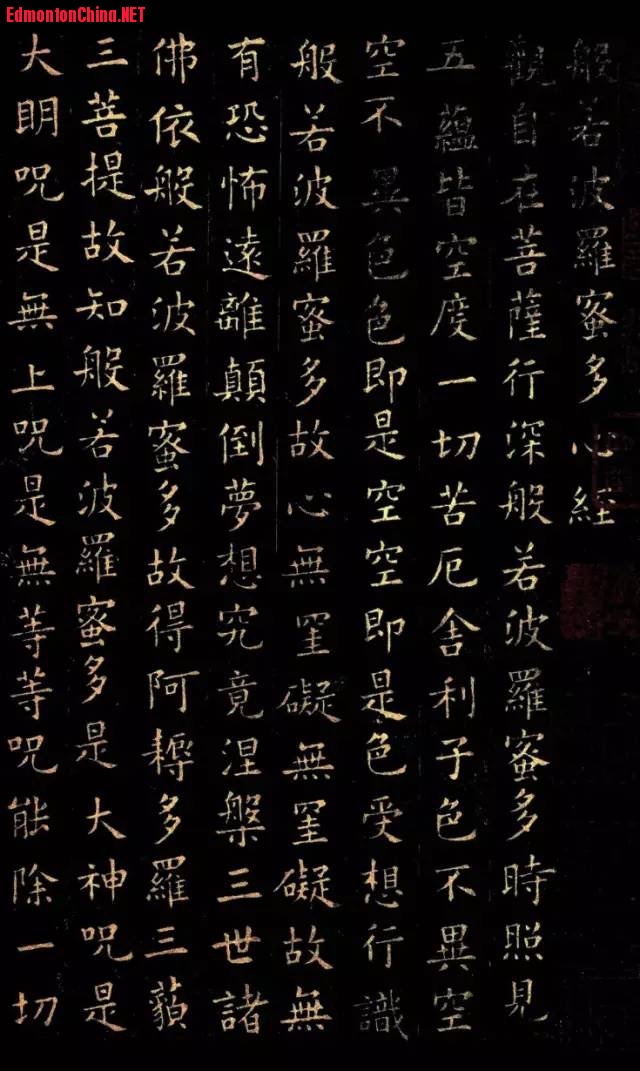 EdmontonChina.NET
般若波羅蜜多心経
觀自在菩薩行深般若波羅蜜多時照見
五蘊皆空度一切苦厄舍利子色不異空
空不異色色即是空空即是色受想行識
般若波羅蜜多故心無罣礙無罣礙故無
有恐怖遠離顛倒夢想究竟涅槃三世諸
佛依般若波羅蜜多故得阿耨多羅三藐
三菩提故知般若波羅蜜多是大神呪是
大明呪是無上呪是無等等呪能除一切